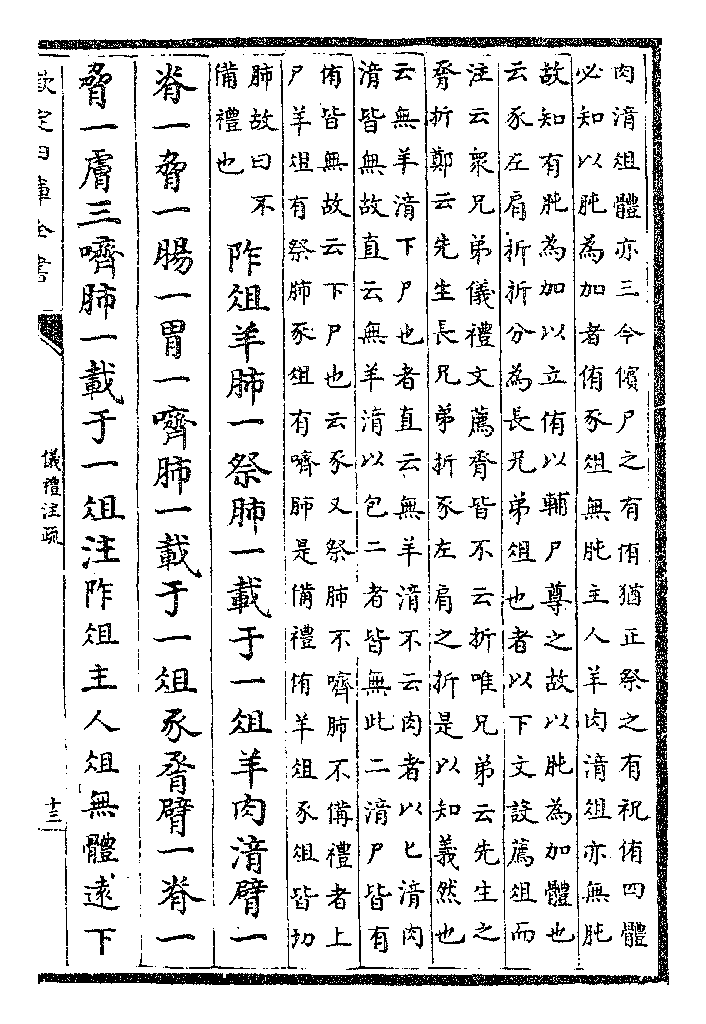 肉湆俎體亦三今儐尸之有侑猶正祭之有祝侑四體
必知以肫為加者侑豕俎無肫主人羊肉湆俎亦無肫
故知有肫為加以立侑以輔尸尊之故以肫為加體也
云豕左肩折折分為長兄弟俎也者以下文設薦俎而
注云衆兄弟儀禮文薦脀皆不云折唯兄弟云先生之
脀折鄭云先生長兄弟折豕左肩之折是以知義然也
云無羊湆下尸也者直云無羊湆不云肉者以匕湆肉
湆皆無故直云無羊湆以包二者皆無此二湆尸皆有
侑皆無故云下尸也云豕又祭肺不嚌肺不備禮者上
尸羊俎有祭肺豕俎有嚌肺是備禮侑羊俎豕俎皆切
肺故曰不
備禮也
阼俎羊肺一祭肺一載于一俎羊肉湆臂一
脊一脅一腸一胃一嚌肺一載于一俎豕脀臂一脊一
脅一膚三嚌肺一載于一俎注阼俎主人俎無體遠下
欽定四庫全書
儀禮注疏
十三